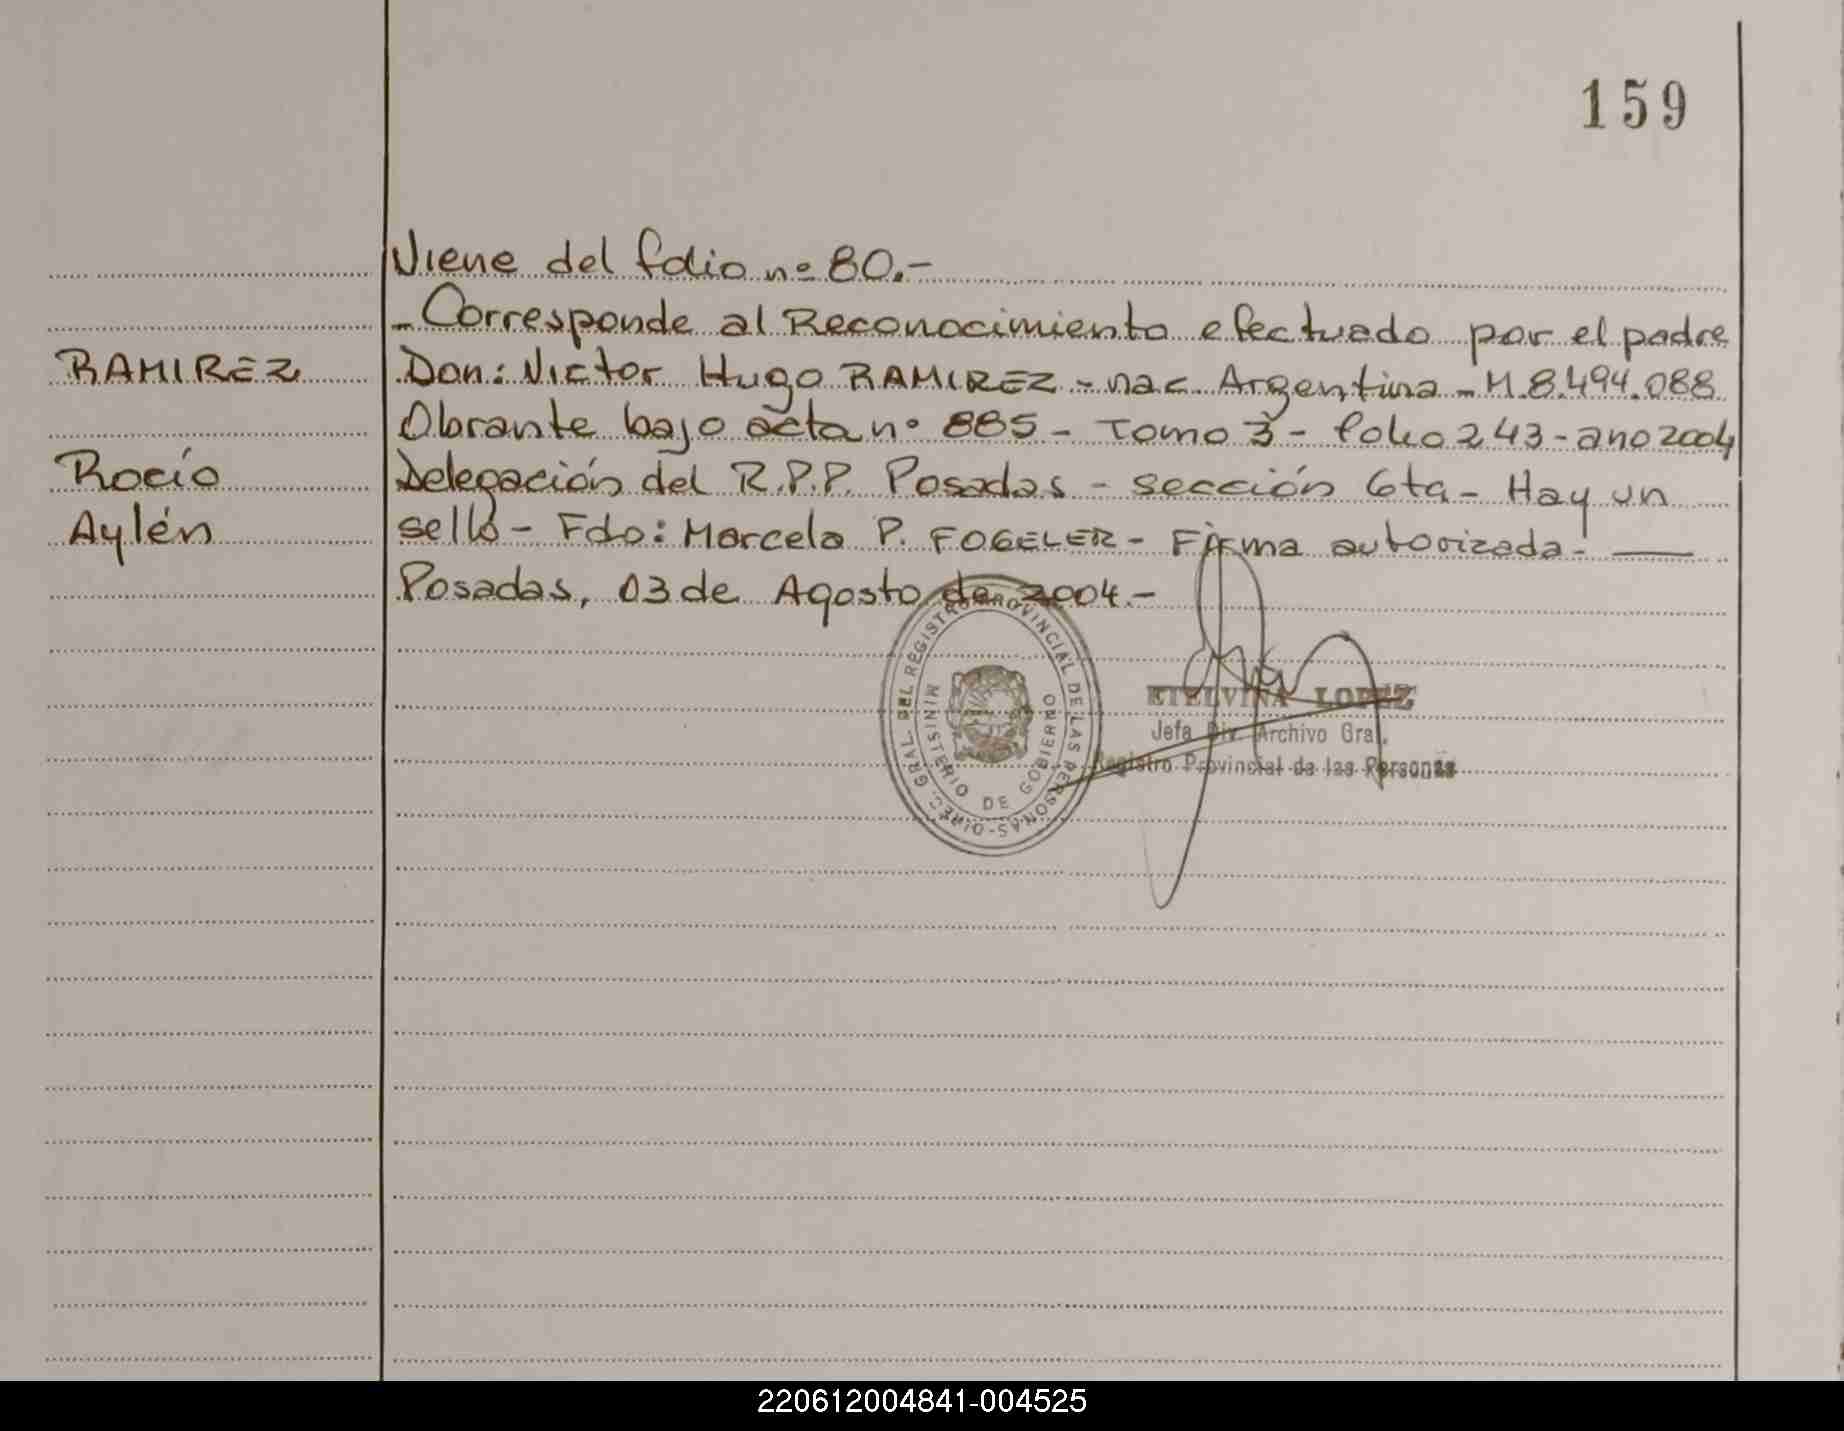 159
Viene del folio nº 80.-
- Corresponde al Reconocimiento efectuado por el padre
RAMIREZ
Don: Victor Hugo RAMIREZ - nac. Argentina - M.8.494.088
Obrante bajo acta nº 885 - Tomo 3 - folio 243 - año 2004
Rocío
Delegación del R.P.P. Posadas - sección 6ta - Hay un
Aylén
sello - Fdo: Marcela P. FOGELER - Firma autorizada.-
Posadas, 03 de Agosto de 2004.-
DIREC. GRAL. DEL REGISTRO PROVINCIAL DE LAS PERSONAS -
MINISTERIO DE GOBIERNO
ETELVINA LOPEZ
Jefa Div. Archivo Gral.
Registro Provincial de las Personas
220612004841-004525